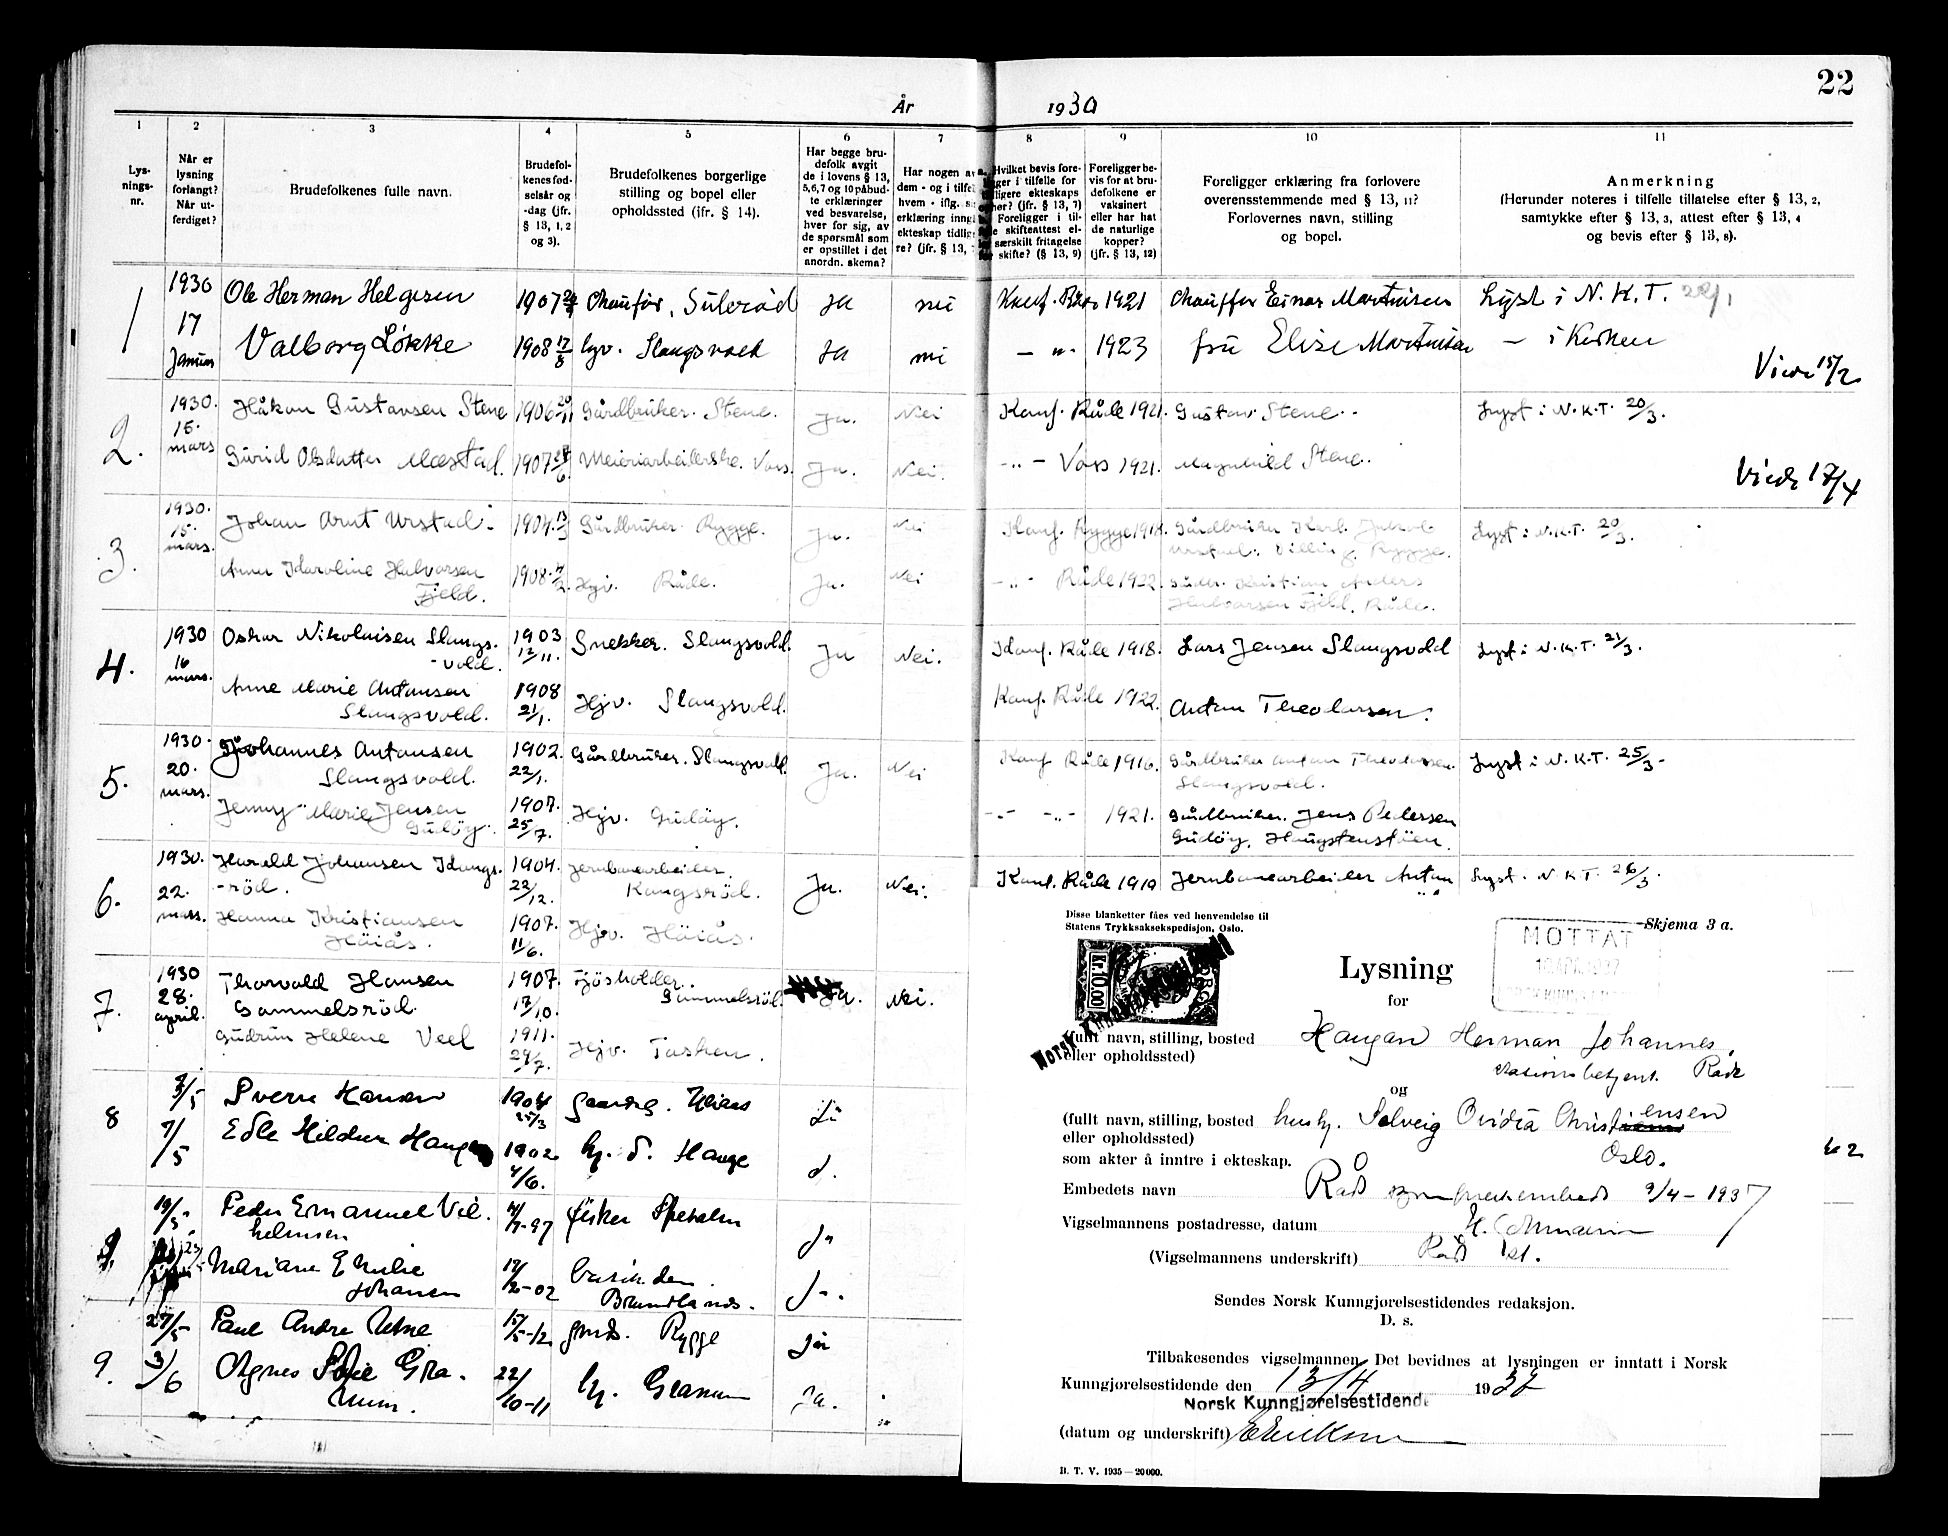 22
År 1930
1 2 3 4 5 6 7 8 9 10 11
Lys-
nings-
nr.
Når er
lysning
forlangt?
Når ut-
ferdiget?
Brudefolkenes fulle navn.
Brudefol-
kenes fød-
selsår og
-dag (jfr.
§ 13, 1, 2
og 3).
Brudefolkenes borgerlige
stilling og bopel eller
opholdssted (ifr. § 14).
Har begge bru-
defolk avgit
de i lovens § 13,
5,6,7 og 10 påbud-
te erklæringer
ved besvarelse,
hver for sig, av
de spørsmål som
er opstillet i det
anordn. skema?
Har nogen av
dem - og i tilfel
hvem - iflg.
erklæring inng
ekteskap tidlig
re? (jfr. § 13,
Hvilket bevis fore-
ger i tilfelle for
ligere ekteskaps
her? (jfr. § 13, 7)
Foreligger i til-
e skifteattest el-
særskilt fritagelse
skifte? (§ 13, 9)
Foreligger be-
vis for at bru-
defolkene er
vaksinert
eller har hat
de naturlige
kopper?
(jfr. § 13, 12)
Foreligger erklæring fra forlovere
overensstemmende med § 13, 11?
Forlovernes navn, stilling
og bopel.
Anmerkning
(Herunder noteres i tilfelle tillatelse efter § 13, 2,
samtykke efter § 13, 3, attest efter § 13, 4
og bevis efter § 13, 8).
1 1930 17 Januar Ole Herman Helgesen 1907 Chaufør, Sulerød Ja nei Konf. Råde 1921 Chauffør Einar Martinsen Lyst i N. K. T. 22/1
Valborg Løkke 1908 17/8 hjv. Slangsvold Ja nei - " - 1923 fru Elise Martinsen - i Kirken
Viede 15/2
2. 1930. 15. mars Håkon Gustavsen Stene 1906 20/11 Gårdbruker. Stene. Ja. Nei Konf. Råde 1921. Gustav Stene. Lyst i N.K.T. 20/3.
Gurid Olsdatter Mæstad. 1907 Meieriarbeiderske. Voss. Ja. Nei. - " - Voss 1921. Magnhild Stene.
Viede 17/4
3. 1930. 15. mars. Johan Arnt Urstad. 1904. 13/3 Gårdbruker Rygge. Ja. Nei Konf. Rygge 1918. Gårdbruker Karl
Urstad. Dilling Rygge. Lyst i N.K.T. 20/3.
Anna Karoline Halvorsen
Fjeld. 1908. Hjv. Råde. Ja. Nei - " - Råde 1922. Gårdbr. Kristian Anders
Halvorsen Fjeld, Råde.
4. 1930 16 mars. Oskar Nikolaisen Slangs-
vold. 1903 12/11. Snekker. Slangsvold. Ja Nei. Konf. Råde 1918. Lars Jensen Slangsvold Lyst i N.K.T. 21/3.
Anne Marie Antonsen
Slangsvold. 1908 21/1. Hjv. Slangsvold. Konf. Råde 1922. Anton Theodorsen.
5. 1930. 20. mars. Johannes Antonsen
Slangsvold. 1902. 22/1. Gårdbruker. Slangsvold. Ja. Nei Konf Råde 1916. Gårdbruker Anton Theodorsen
Slangsvold. Lyst i N.K.T. 25/3.
Jenny Marie Jensen
Gudøy. 1907. 25/7. Hjv. Gudøy. - " - - " - 1921. Gårdbruker. Jens Pedersen
Gudøy, Haugstenstøen.
6. 1930. 22. mars. Harald Johansen Kangs-
rød. 1904. 22/12. Jernbanearbeider.
Kangsrød. Ja. Nei. Konf. Råde 1919 Jernbanearbeider Anton Lyst. N.K.T. 26/3.
Hanna Kristiansen
Höiås. 1907. 11/6. Hjv. Höiås.
7. 1930 28. april. Thorvald Hansen
Gammelsröd. 1907. 17/10. Fjösholder.
Gammelsröd. Ja. Nei.
Gudrun Helene Veel 1911. 29/7. Hjv. Tasken.
8 Sverre Hansen 1904 25/3 Ja
7/5 Edle Hildur Hauge 1902 4/6. hj. d. Hauge d.
19/5. Peder Emanuel Vil-
helmsen -97 fisker Ja
Mariane Emilie
Johansen -02
9. 27/5 Paul Andre 15/5-12 Rygge Ja
3/6 Agnes Sofie Gra-
num. 22/10-11 hj. Granum Ja.
Disse blanketter fåes ved henvendelse til
Statens Trykksaksekspedisjon, Oslo.
Skjema 3 a.
MOTTAT
Kr. 10.00
Norsk Kunngjørelsestidende
Lysning
for
(fullt navn, stilling, bosted Haugan Herman Johannes,
eller opholdssted) stasjonsbetjent. Råde
og
(fullt navn, stilling, bosted hush. Solveig Ovidia Christensen
eller opholdssted) Oslo.
som akter å inntre i ekteskap.
Embedets navn Råde sogneprestembede 9/4 - 1937
Vigselmannens postadresse, datum
(Vigselmannens underskrift) Råde st.
Sendes Norsk Kunngjørelsestidendes redaksjon.
D. s.
Tilbakesendes vigselmannen. Det bevidnes at lysningen er inntatt i Norsk
Kunngjørelsestidende den 13/4 1937
Norsk Kunngjørelsestidende
(datum og underskrift)
B. T. V. 1935 — 20 000.